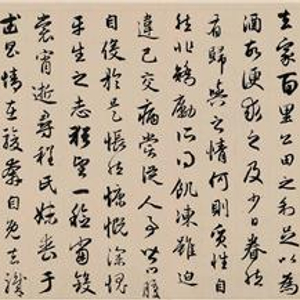 去家百里公田之利足以為
酒故便求之及少日眷然
有歸歟之情何則質性自
然非矯勵所得飢凍雖迫
違己交病嘗從人事皆口腹
自役於是悵然慷慨深愧
平生之志猶望一稔當斂
裳宵逝尋程氏妹喪于
武昌情在駿奔自免去職